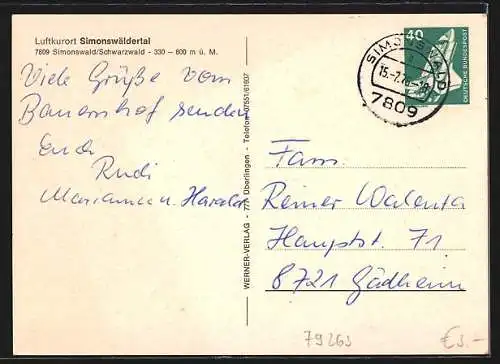 Luftkurort Simonswäldertal
7809 Simonswald/Schwarzwald - 330 – 800 m ü. M.
Viele Grüße vom
Bauernhof senden
Euch
Rudi
Marianne u. Harald
WERNER-VERLAG - 777 Überlingen - Telefon 07551/61607
40
DEUTSCHE BUNDESPOST
SIMONSWALD
7809
Fam.
Reiner Walenta
Hauptstr. 71
8721 Gädheim
79263
€3.-